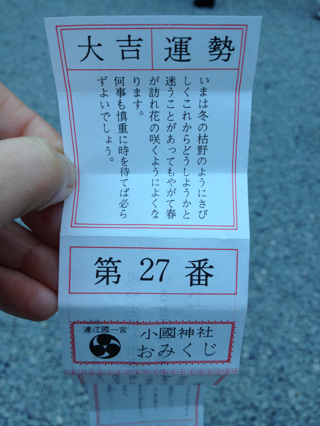 大吉 運勢
いまは冬の枯野のようにさび
しくこれからどうしようかと
迷うことがあってもやがて春
が訪れ花の咲くようによくな
ります。
何事も慎重に時を待てば必ら
ずよいでしょう。
第27番
遠江國一宮
小國神社
おみくじ